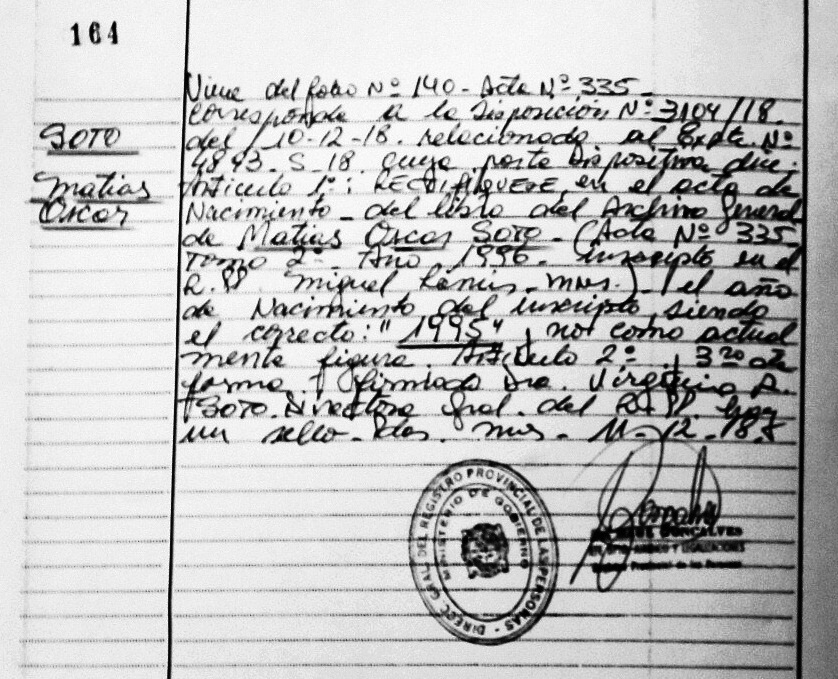 164
Viene del folio Nº 140 - Acta Nº 335 -
corresponde a la Disposición Nº 3104/18.
SOTO
del 10-12-18. relacionado al Expte. Nº
4893-S-18 cuya parte dispositiva dice:
Matias
Articulo 1º: RECTIFIQUESE en el acta de
Oscar
Nacimiento - del libro del Archivo General
de Matias Oscar SOTO - (Acta Nº 335
Tomo 2º - Año 1996 - inscripto en el
R.P. Miguel Lanus - Mnes.) - el año
de Nacimiento del inscripto, siendo
el correcto: "1995", no como actual
mente figura Articulo 2º y 3ro de
forma firmado Dra. Virginia A.
SOTO. Directora Gral. del R.P.P. hay
un sello - Pdas. Mnes - 11-12-18.
DIRECC. GRAL. DEL REGISTRO PROVINCIAL DE LAS PERSONAS -
MINISTERIO DE GOBIERNO
GONCALVES
Provincial de las Personas